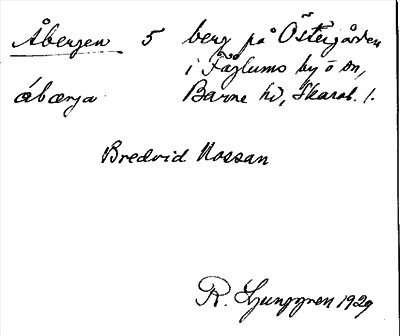 Åbergen 5 berg på Östergården
i Fåglums by o sn,
åbærja Barne hd, Skarab. l.
Bredvid Nossan
R. Ljunggren 1929